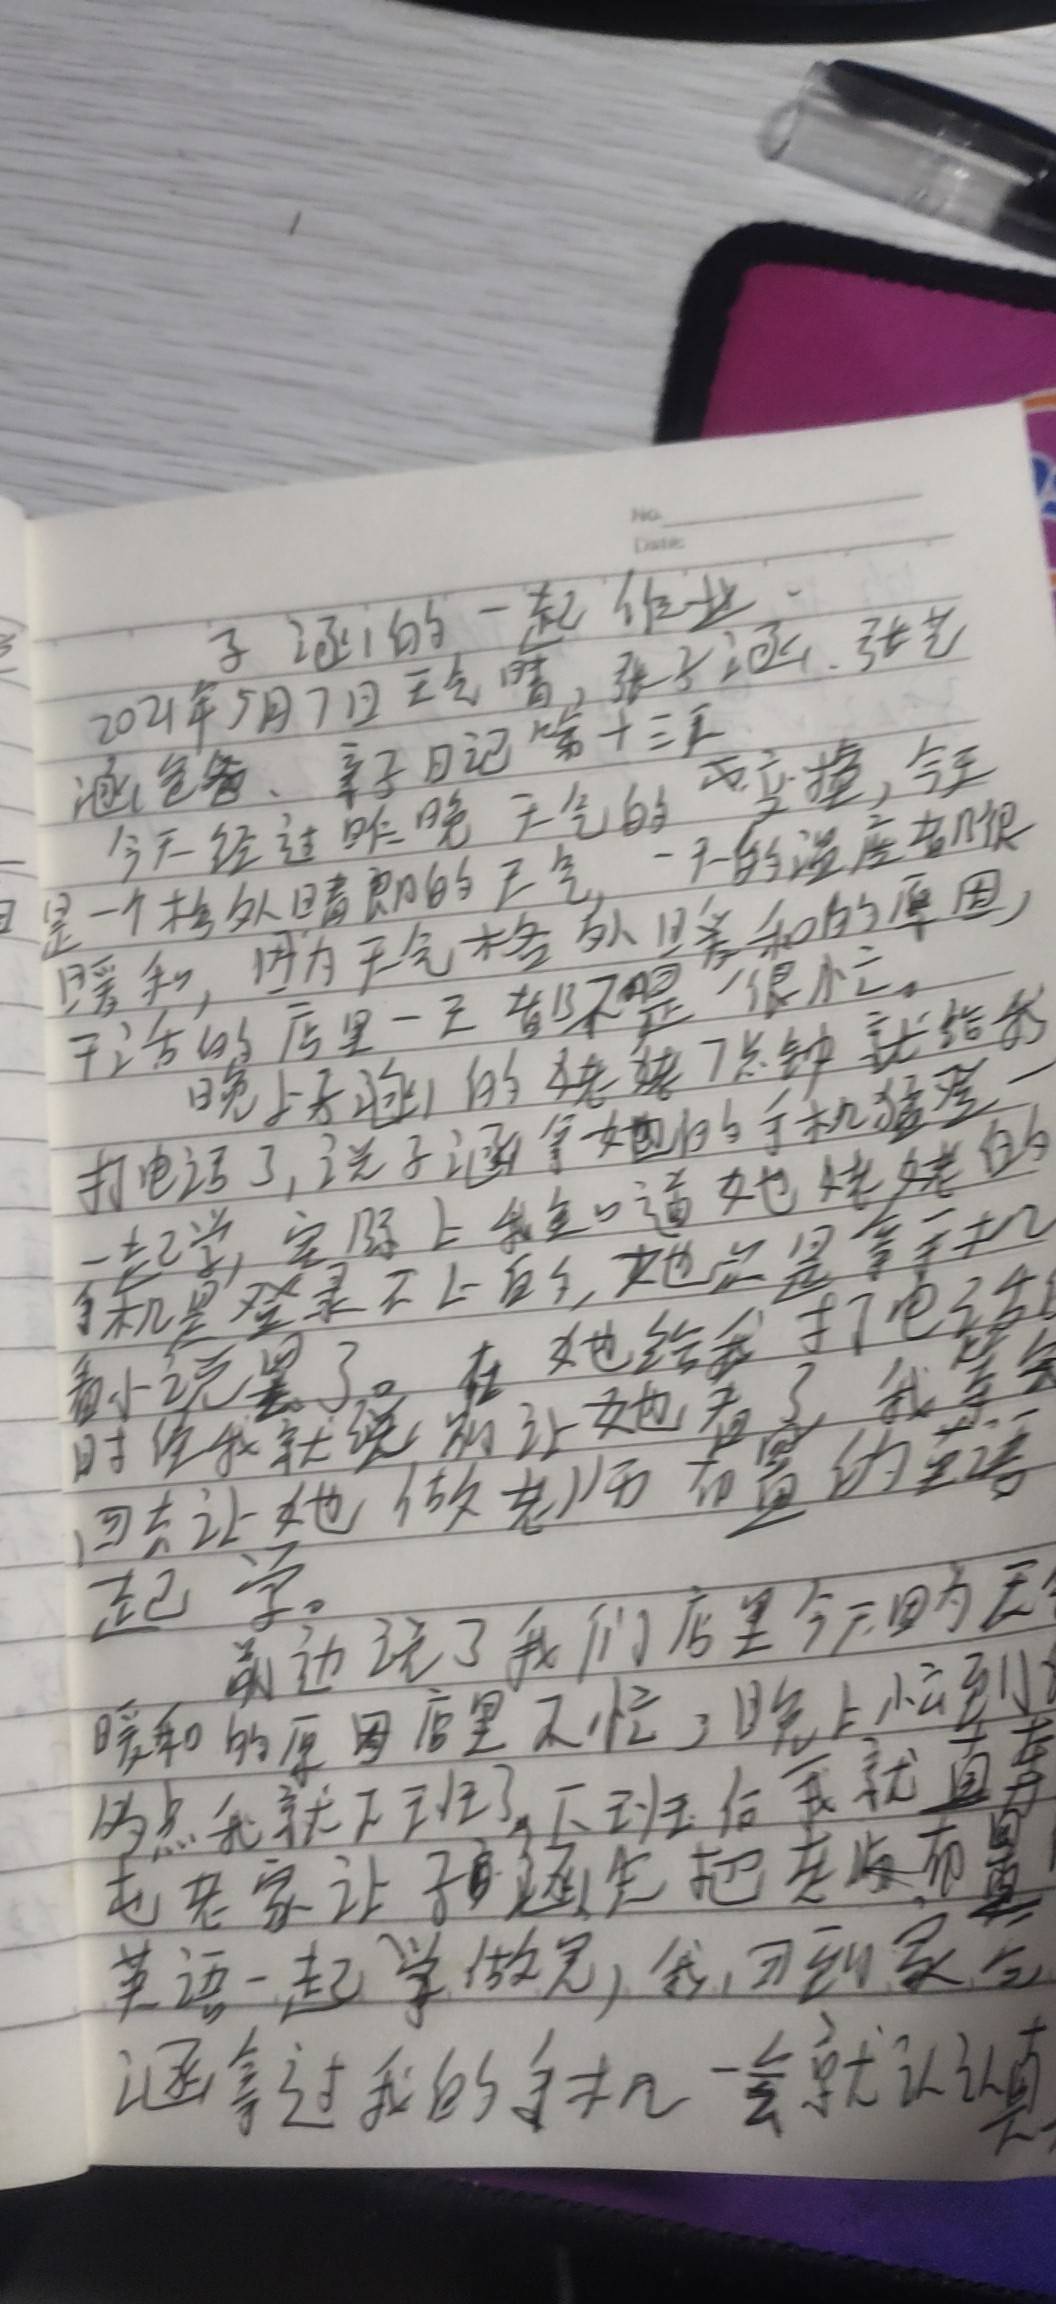 No.
Date
子涵的一起作业.
2021年5月7日天气晴,张子涵、张艺
涵爸爸、亲子日记第十三天
今天经过昨晚天气的变,今天
是一个格外晴朗的天气,一天的温度都很
暖和,因为天气格外暖和的原因,
干活的店里一天都不是很忙。
晚上子涵的姥姥7点钟就给我
打电话了,说子涵拿她的手机登
一起学,实际上我知道她姥姥的
手机是登录不上的,她总是拿手机
看小说罢了。在她给我打电话的
时候我就说别让她看了,我等会
回去让她做老师布置的英语
起学。
前边说了我们店里今天因为天气
暖和的原因店里不忙,晚上忙到
点我就下班了,下班后我就直奔
老家让子涵先把老师布置
英语一起学做完,我回到家
涵拿过我的手机一会就认认真